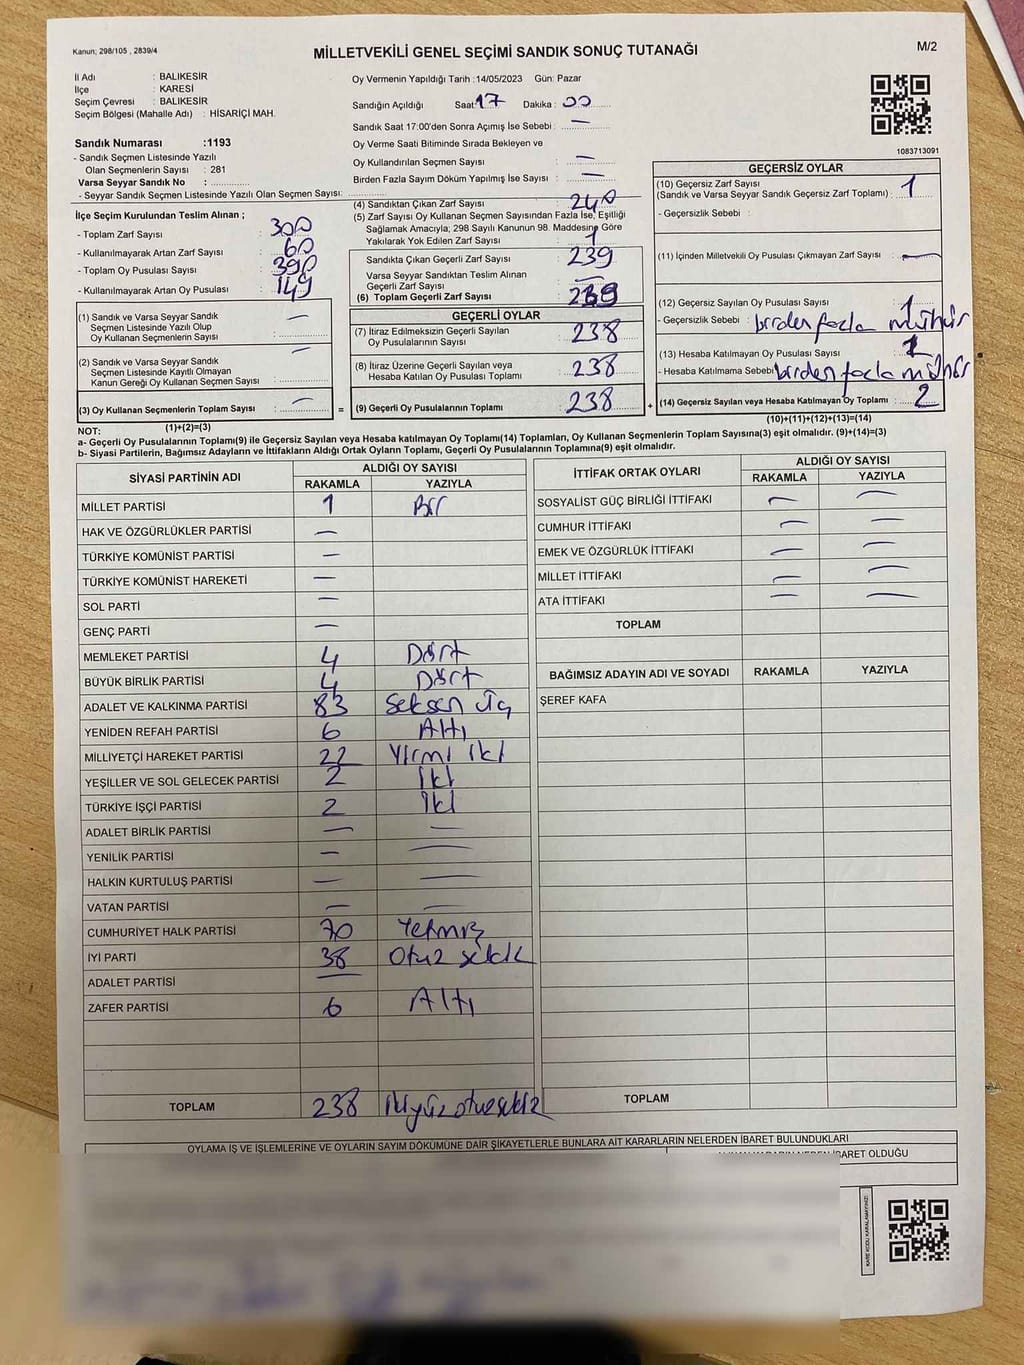 Kanun; 298/105 , 2839/4
MİLLETVEKİLİ GENEL SEÇİMİ SANDIK SONUÇ TUTANAĞI
M/2
İl Adı : BALIKESİR
İlçe : KARESİ
Seçim Çevresi : BALIKESİR
Seçim Bölgesi (Mahalle Adı) : HİSARİÇİ MAH.
Sandık Numarası :1193
- Sandık Seçmen Listesinde Yazılı
Olan Seçmenlerin Sayısı : 281
Varsa Seyyar Sandık No :
- Seyyar Sandık Seçmen Listesinde Yazılı Olan Seçmen Sayısı:
Oy Vermenin Yapıldığı Tarih :14/05/2023 Gün: Pazar
Sandığın Açıldığı Saat: 17 Dakika : 00
Sandık Saat 17:00'den Sonra Açımış İse Sebebi : —
Oy Verme Saati Bitiminde Sırada Bekleyen ve
Oy Kullandırılan Seçmen Sayısı : —
Birden Fazla Sayım Döküm Yapılmış İse Sayısı : —
1083713091
İlçe Seçim Kurulundan Teslim Alınan ;
- Toplam Zarf Sayısı : 300
- Kullanılmayarak Artan Zarf Sayısı : 60
- Toplam Oy Pusulası Sayısı : 390
- Kullanılmayarak Artan Oy Pusulası : 149
(1) Sandık ve Varsa Seyyar Sandık
Seçmen Listesinde Yazılı Olup
Oy Kullanan Seçmenlerin Sayısı : —
(2) Sandık ve Varsa Seyyar Sandık
Seçmen Listesinde Kayıtlı Olmayan
Kanun Gereği Oy Kullanan Seçmen Sayısı : —
(3) Oy Kullanan Seçmenlerin Toplam Sayısı : —
(1)+(2)=(3)
(4) Sandıktan Çıkan Zarf Sayısı : 240
(5) Zarf Sayısı Oy Kullanan Seçmen Sayısından Fazla İse, Eşitliği
Sağlamak Amacıyla; 298 Sayılı Kanunun 98. Maddesine Göre
Yakılarak Yok Edilen Zarf Sayısı : 1
Sandıkta Çıkan Geçerli Zarf Sayısı : 239
Varsa Seyyar Sandıktan Teslim Alınan
Geçerli Zarf Sayısı : —
(6) Toplam Geçerli Zarf Sayısı : 239
GEÇERLİ OYLAR
(7) İtiraz Edilmeksizin Geçerli Sayılan
Oy Pusulalarının Sayısı : 238
(8) İtiraz Üzerine Geçerli Sayılan veya
Hesaba Katılan Oy Pusulası Toplamı : 238
= (9) Geçerli Oy Pusulalarının Toplamı : 238 +
GEÇERSİZ OYLAR
(10) Geçersiz Zarf Sayısı
(Sandık ve Varsa Seyyar Sandık Geçersiz Zarf Toplamı) : 1
- Geçersizlik Sebebi :
(11) İçinden Milletvekili Oy Pusulası Çıkmayan Zarf Sayısı : —
(12) Geçersiz Sayılan Oy Pusulası Sayısı : 1
- Geçersizlik Sebebi : birden fazla mühür
(13) Hesaba Katılmayan Oy Pusulası Sayısı :
- Hesaba Katılmama Sebebi : birden fazla mühür
(14) Geçersiz Sayılan veya Hesaba Katılmayan Oy Toplamı : 2
(10)+(11)+(12)+(13)=(14)
NOT:
a- Geçerli Oy Pusulalarının Toplamı(9) ile Geçersiz Sayılan veya Hesaba katılmayan Oy Toplamı(14) Toplamları, Oy Kullanan Seçmenlerin Toplam Sayısına(3) eşit olmalıdır. (9)+(14)=(3)
b- Siyasi Partilerin, Bağımsız Adayların ve İttifakların Aldığı Ortak Oyların Toplamı, Geçerli Oy Pusulalarının Toplamına(9) eşit olmalıdır.
SİYASİ PARTİNİN ADI ALDIĞI OY SAYISI
RAKAMLA YAZIYLA
MİLLET PARTİSİ 1 Bir
HAK VE ÖZGÜRLÜKLER PARTİSİ —
TÜRKİYE KOMÜNİST PARTİSİ —
TÜRKİYE KOMÜNİST HAREKETİ —
SOL PARTİ —
GENÇ PARTİ —
MEMLEKET PARTİSİ 4 Dört
BÜYÜK BİRLİK PARTİSİ 4 Dört
ADALET VE KALKINMA PARTİSİ 83 Seksen üç
YENİDEN REFAH PARTİSİ 6 Altı
MİLLİYETÇİ HAREKET PARTİSİ 22 Yirmi iki
YEŞİLLER VE SOL GELECEK PARTİSİ 2 İki
TÜRKİYE İŞÇİ PARTİSİ 2 İki
ADALET BİRLİK PARTİSİ — —
YENİLİK PARTİSİ — —
HALKIN KURTULUŞ PARTİSİ — —
VATAN PARTİSİ — —
CUMHURİYET HALK PARTİSİ 70 Yetmiş
İYİ PARTİ 38 Otuz sekiz
ADALET PARTİSİ —
ZAFER PARTİSİ 6 Altı
TOPLAM 238 İkiyüzotuzsekiz
İTTİFAK ORTAK OYLARI ALDIĞI OY SAYISI
RAKAMLA YAZIYLA
SOSYALİST GÜÇ BİRLİĞİ İTTİFAKI — —
CUMHUR İTTİFAKI — —
EMEK VE ÖZGÜRLÜK İTTİFAKI — —
MİLLET İTTİFAKI — —
ATA İTTİFAKI — —
TOPLAM
BAĞIMSIZ ADAYIN ADI VE SOYADI RAKAMLA YAZIYLA
ŞEREF KAFA
TOPLAM
OYLAMA İŞ VE İŞLEMLERİNE VE OYLARIN SAYIM DÖKÜMÜNE DAİR ŞİKAYETLERLE BUNLARA AİT KARARLARIN NELERDEN İBARET BULUNDUKLARI
İBARET OLDUĞU
KARE KODU KARALAMAYINIZ!